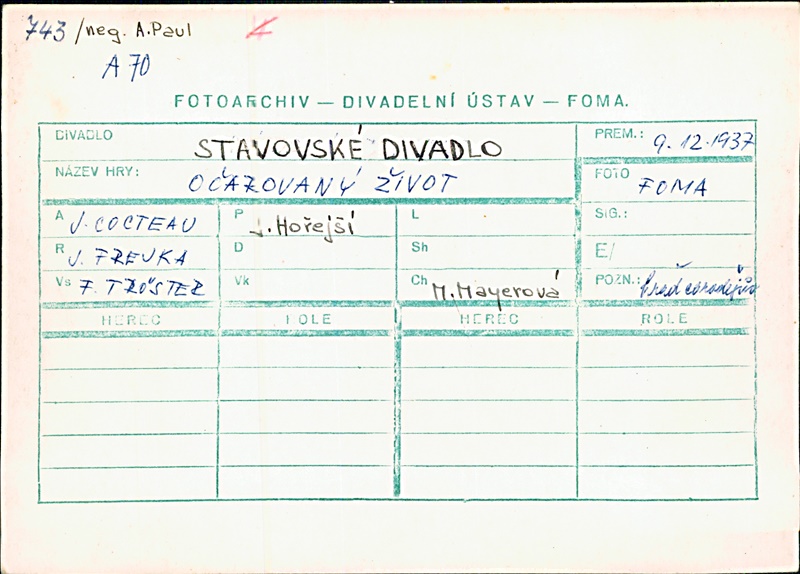 743 /neg. A.Paul
A 70
FOTOARCHIV — DIVADELNÍ ÚSTAV — FOMA.
DIVADLO STAVOVSKÉ DIVADLO PREM.: 9.12.1937
NÁZEV HRY: OČAROVANÝ ŽIVOT FOTO FOMA
A J. COCTEAU P J. Hořejší L SIG.:
R J. FREJKA D Sh E/
Vs F. TRÖSTER Vk Ch M. Mayerová POZN.: hrad čarodějův
HEREC ROLE HEREC ROLE